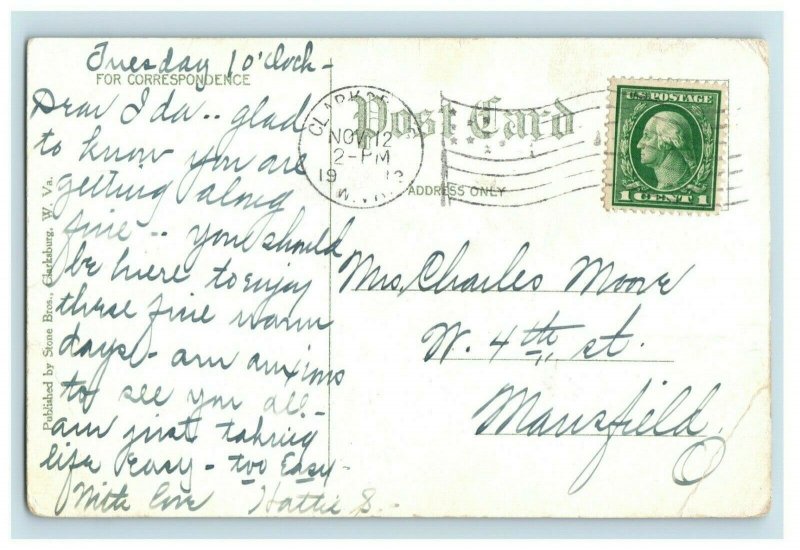 Tuesday 1 o'Clock-
FOR CORRESPONDENCE
Dear Ida .. glad
to know you are
getting along
fine -- you should
be here to enjoy
these fine warm
days - am anxious
to see you all -
am just taking
life easy - too Easy -
With love Hattie S.
Published by Stone Bros., Clarksburg, W. Va.
Post Card
ADDRESS ONLY
NOV 12
2-PM
19 13
W.VA.
U.S. POSTAGE
1 CENT 1
Mrs. Charles Moore
W. 4th st.
Mansfield.
O